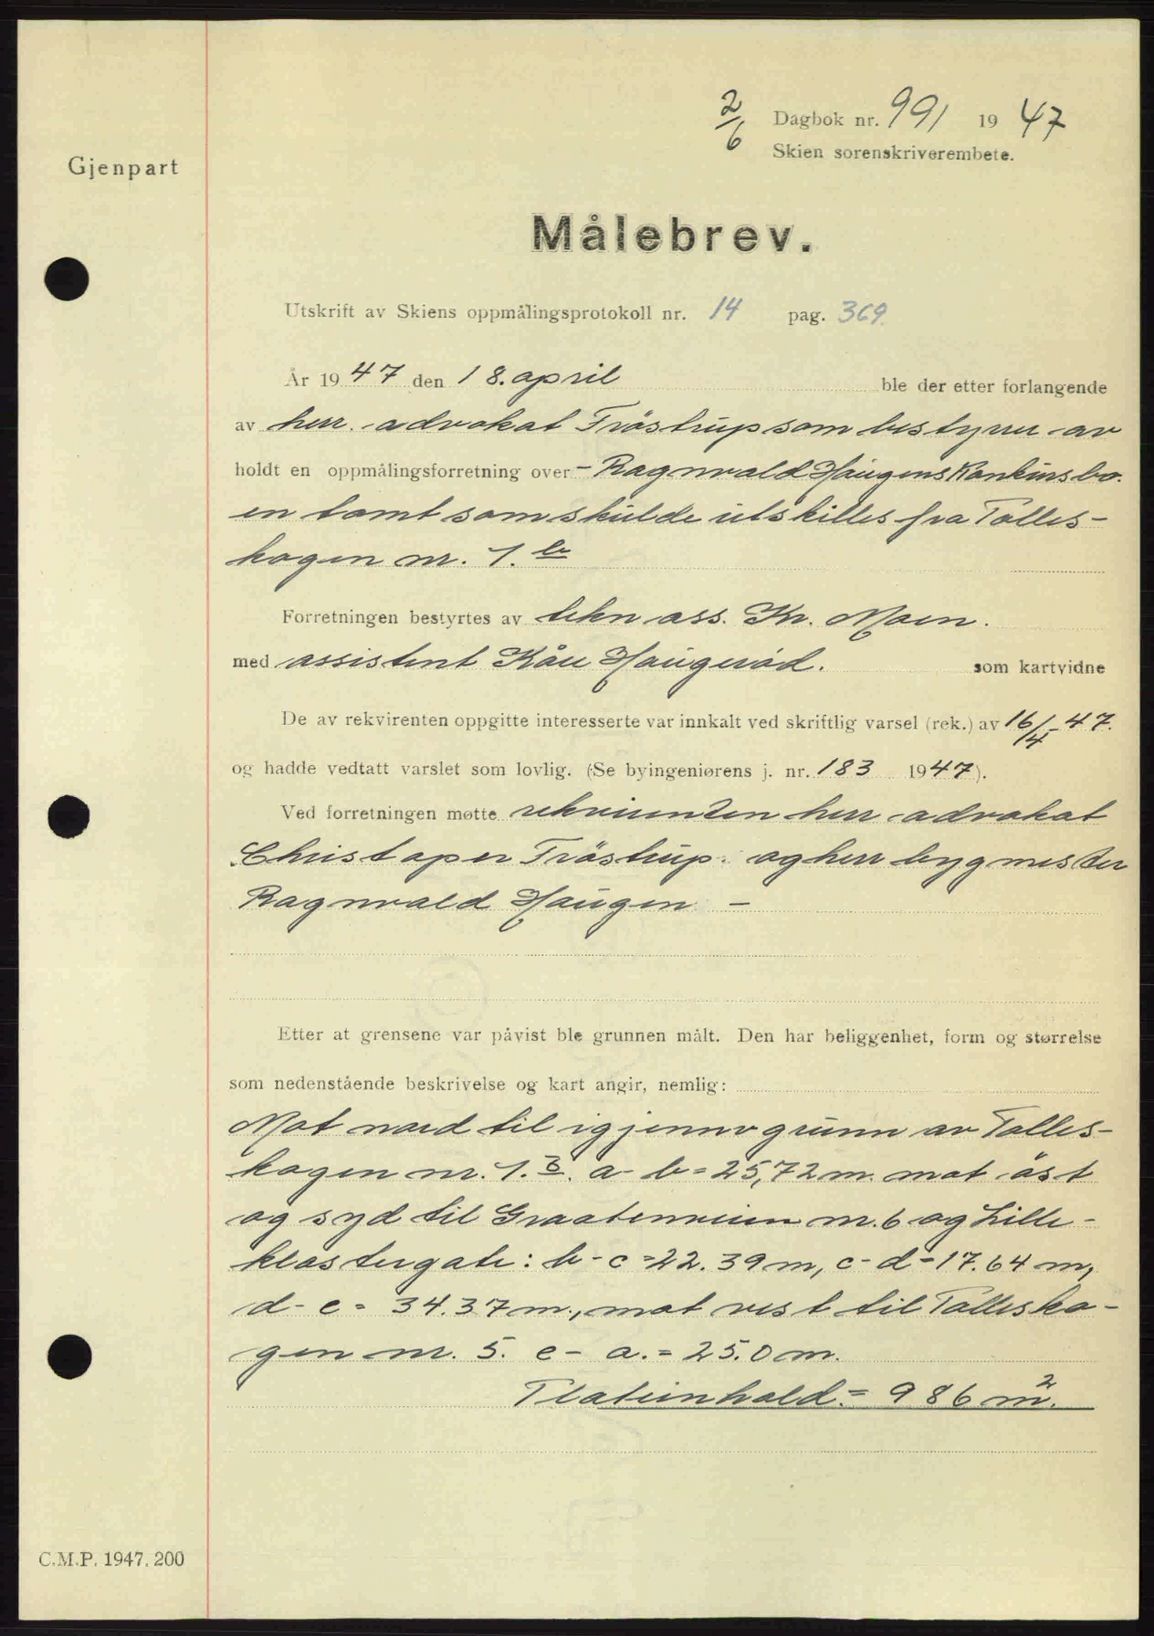 2/6 Dagbok nr. 991 1947
Skien sorenskriverembete.
Gjenpart
Målebrev.
Utskrift av Skiens oppmålingsprotokoll nr. 14 pag. 369.
År 1947 den 18. april ble der etter forlangende
av herr. advokat Tröstrup som bestyrer av
holdt en oppmålingsforretning over - Ragnvald Haugens Konkursbo.
en tomt som skulde utskilles fra Falles-
kogen nr. 1.b
Forretningen bestyrtes av tekn ass. Kr. Moen.
med assistent Kåre Haugeröd. som kartvidne
De av rekvirenten oppgitte interesserte var innkalt ved skriftlig varsel (rek.) av 16/4-47.
og hadde vedtatt varslet som lovlig. (Se byingeniørens j. nr. 183 1947).
Ved forretningen møtte rekvirenten herr advokat
Christoper Tröstrup. og herr bygmester
Ragnvald Haugen -
Etter at grensene var påvist ble grunnen målt. Den har beliggenhet, form og størrelse
som nedenstående beskrivelse og kart angir, nemlig:
Mot nord til igjenv grunn av Falles-
kogen nr. 1.B. a-b = 25,72 m. mot öst
og syd til Graatenveien nr. 6 og Lille-
klostergate: b-c = 22.39 m, c-d = 17.64 m,
d-e = 34.37 m., mot vest til Fallesko-
gen nr. 5. e-a. = 25.0 m.
Flateinhold. = 986 m².
C.M.P. 1947. 200